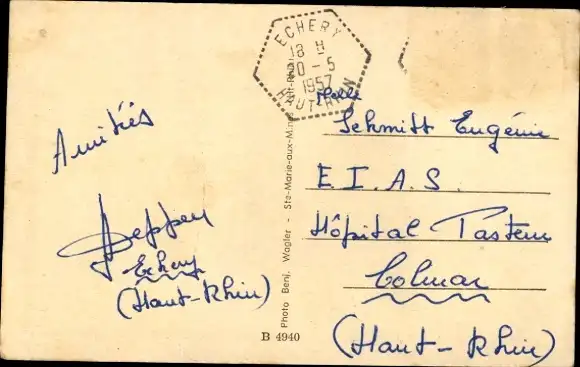 ECHERY
18 H
20 - 5
1957
HAUT-RHIN
Amitiés
Echery
(Haut-Rhin)
Photo Benj. Wagler - Ste-Marie-aux-Mines (Ht-Rhin)
B 4940
Melle
Schmitt Eugénie
E. I. A. S.
Hôpital Pasteur
Colmar
(Haut-Rhin)